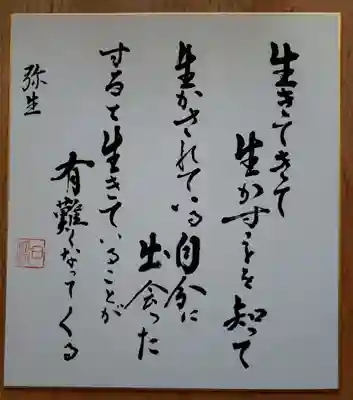 生きてきて
生かす事を知って
生かされている自分に
出会った
すると生きていることが
有難くなってくる
弥生